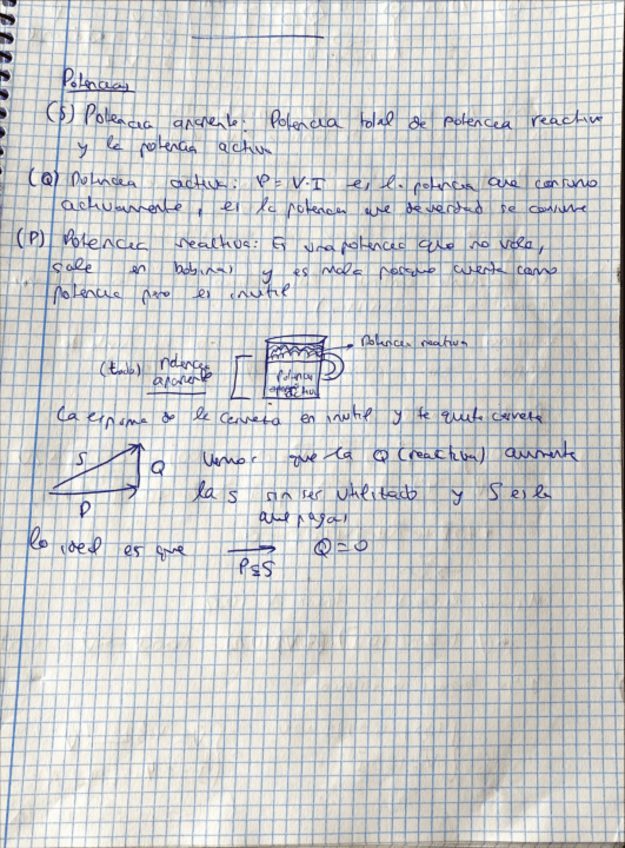 Potencias
(S) Potencia aparente: Potencia total de potencia reactiva
y la potencia activa
(Q) Potencia activa: P = V·I es la potencia que consumo
activamente, es la potencia que de verdad se consume
(P) Potencia reactiva: Es una potencia que no vale,
sale en bobinas y es mala porque cuenta como
potencia pero es inutil
Potencia reactiva
(todo) potencia
aparente
potencia
activa
La espuma de la cerveza en inutil y te quita cerveza
S Q P
Vemos que la Q (reactiva) aumenta
la S sin ser utilitado y S es la
que pagas
lo ideal es que → P≤S Q=0